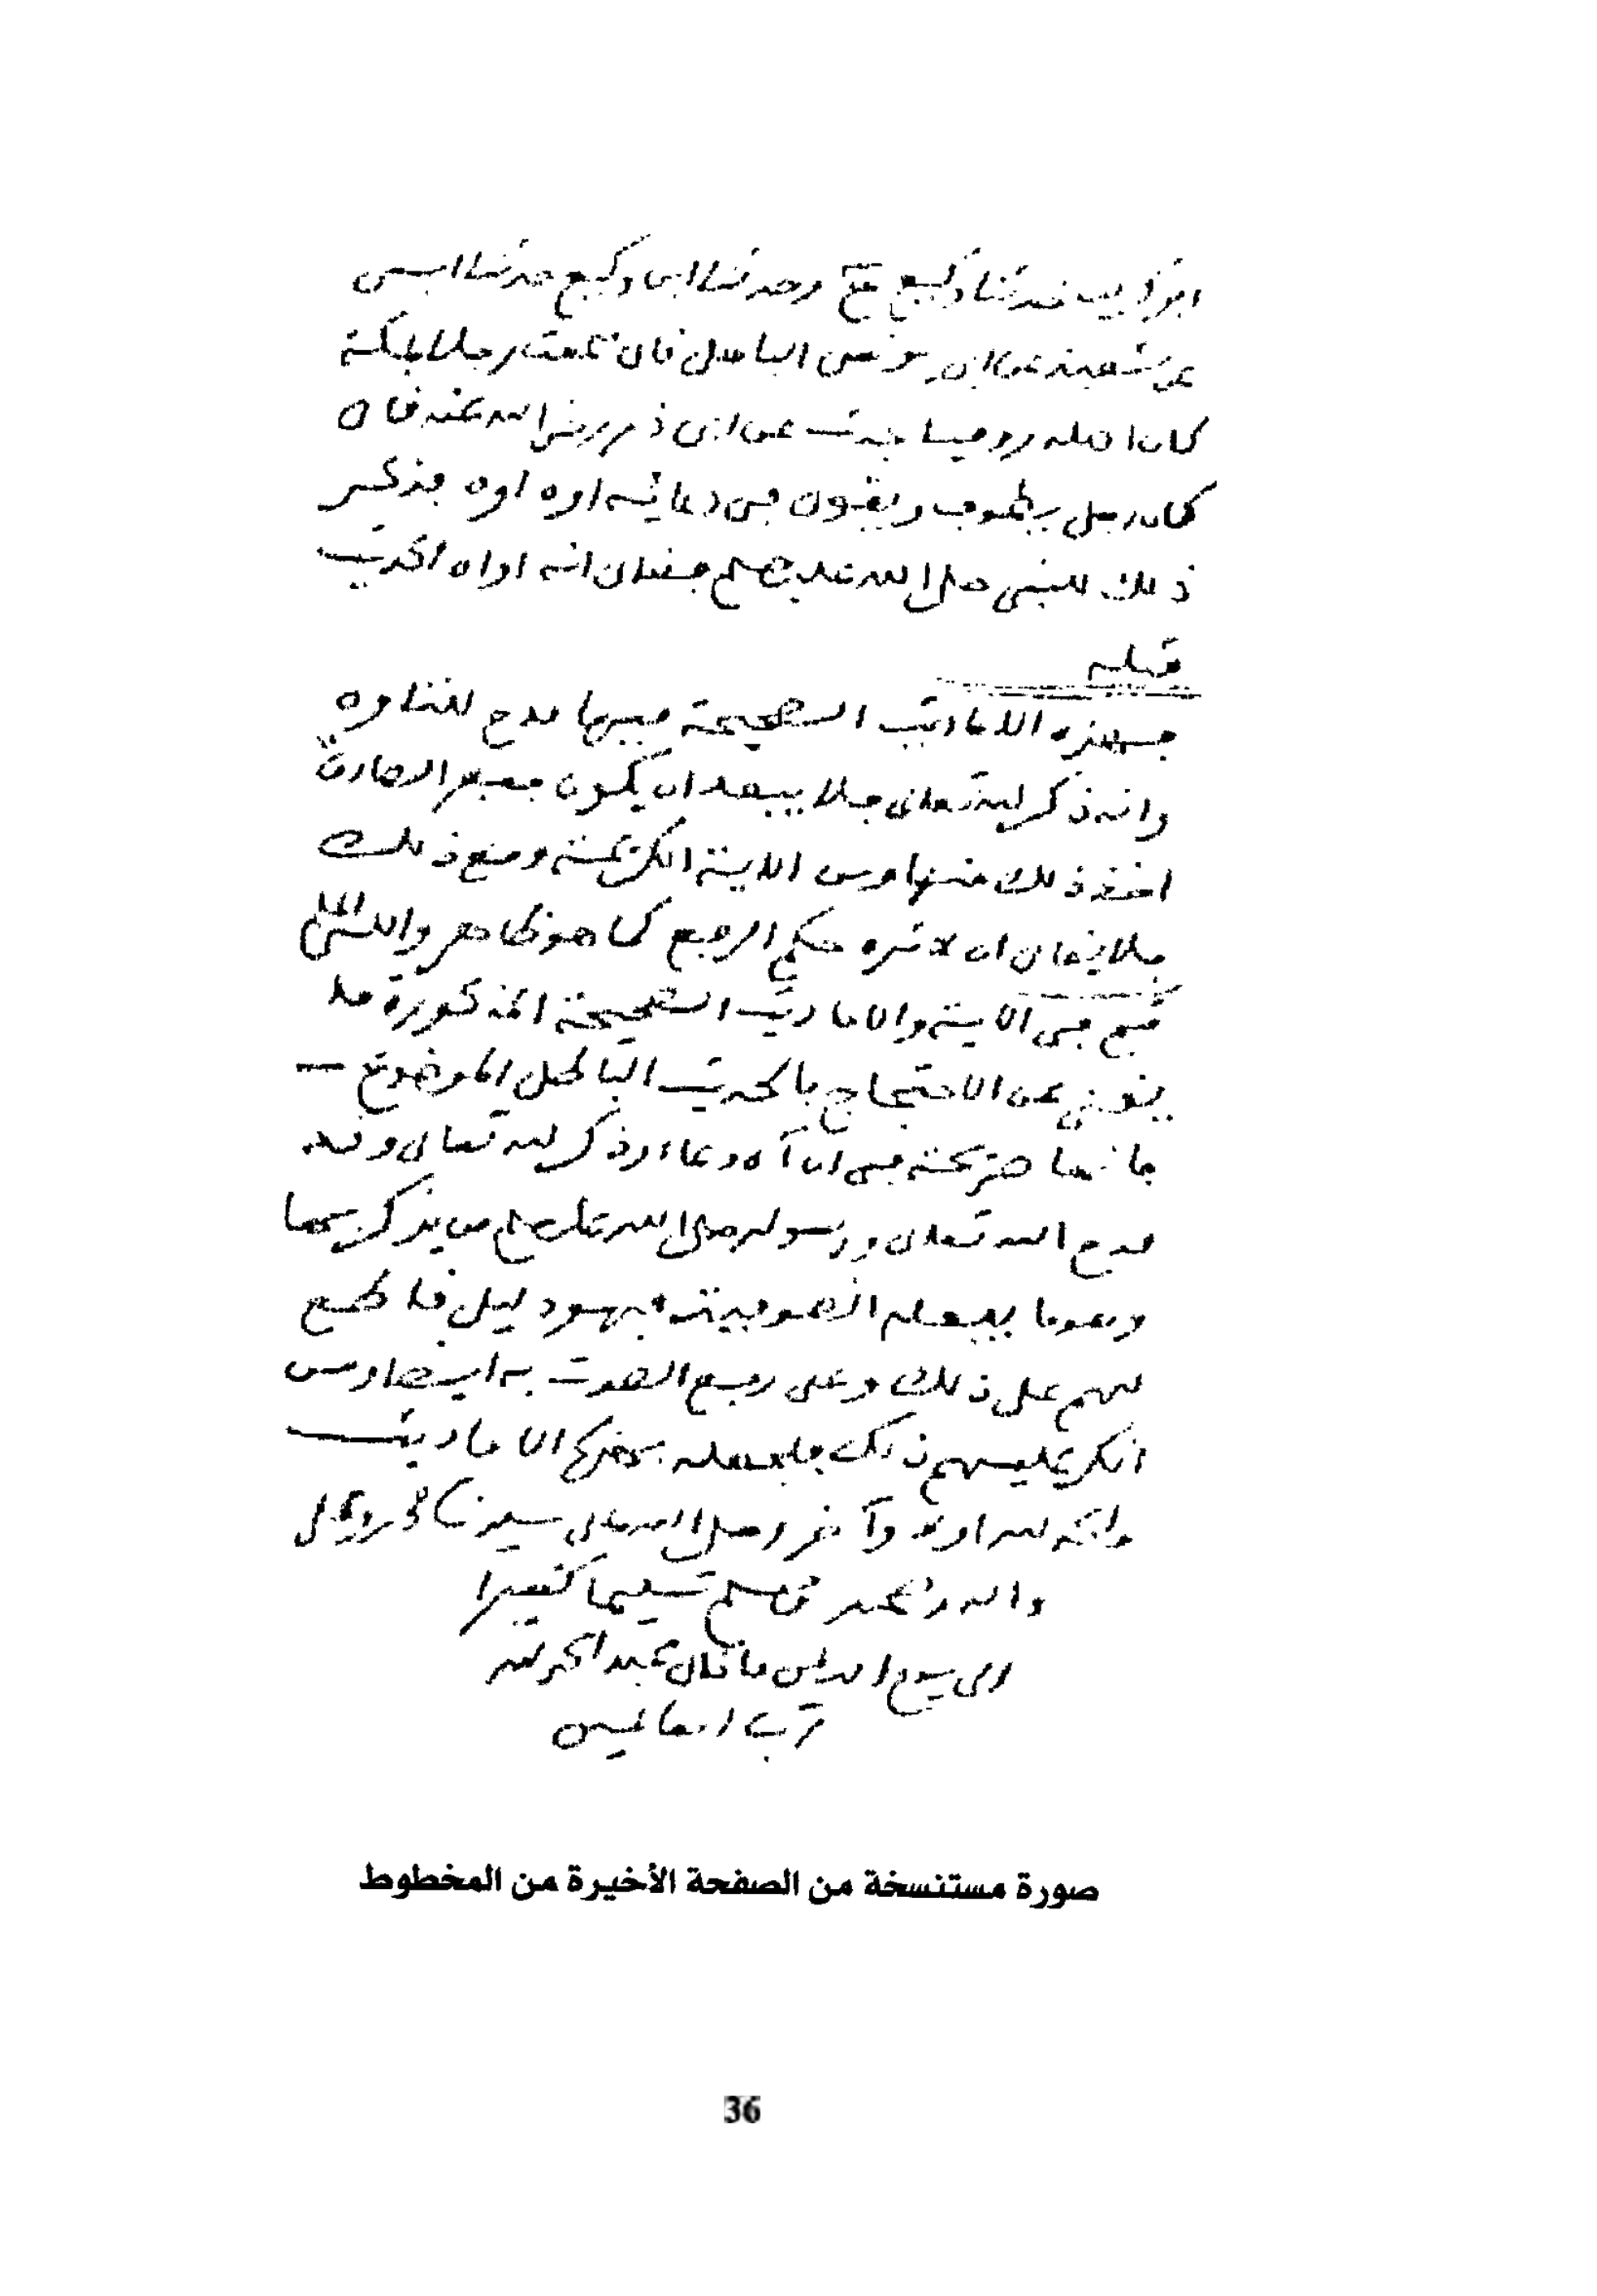 ابو كريب حدثنا وكيع ح وحدثنا ابن وكيع حدثنا ابي
عن شعبة عن ابي يونس الباهلي قال سمعت رجلا بمكة
كان اصله روميا يحدث عن ابي ذر رضي الله عنه قال
كان رجل يطوف ويقول في دعائه اوه اوه فذكر
ذلك للنبي صلى الله عليه وسلم فقال انه اواه الحديث
قبله
فهذه الاحاديث الصحيحة فيها مدح للتاوه
وانه ذكر لله تعالى فلا يبعد ان يكون جعفر الصادق
اخذ ذلك منها ومن الاية الكريمة ومع ذلك
فلا يقال ان لاثره حكم الرفع كما هو ظاهر والله اعلم
في الاية والاحاديث الصحيحة المذكورة ما
يغني عن الاحتجاج بالحديث الباطل الموضوع
فانها صريحة في ان آه دعاء وذكر لله تعالى وقد
مدح الله تعالى ورسوله صلى الله عليه وسلم من يذكر بهما
وهو ما يفعله الصوفية فهو دليل قاطع
لهم على ذلك وعلى رفع الصوت به ايضا ومن
انكر عليهم ذلك فلجهله بهذه الاحاديث
والحمد لله اولا وآخرا وصلى الله على سيدنا محمد وعلى
واله وصحبه وسلم تسليما كثيرا
الى يوم الدين ما قال عبد الحمد لله
رب العالمين
صورة مستنسخة من الصفحة الأخيرة من المخطوط
36